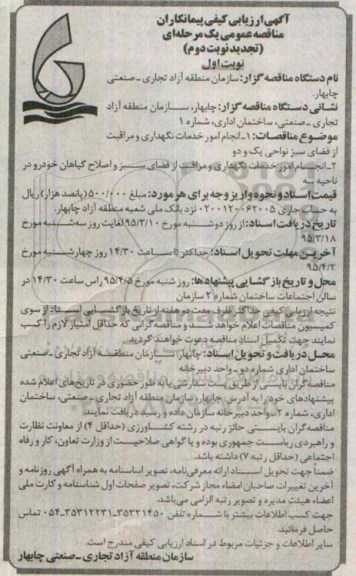 آگهی ارزیابی کیفی پیمانکاران
مناقصه عمومی یک مرحله‌ای
(تجدید نوبت دوم)
نوبت اول
نام دستگاه مناقصه گزار: سازمان منطقه آزاد تجاری - صنعتی
چابهار.
نشانی دستگاه مناقصه گزار: چابهار، سازمان منطقه آزاد
تجاری - صنعتی، ساختمان اداری، شماره ۱
موضوع مناقصات: ۱- انجام امور خدمات نگهداری و مراقبت
از فضای سبز نواحی یک و دو
۲- انجام امور خدمات نگهداری و مراقبت از فضای سبز و اصلاح گیاهان خودرو در
ناحیه سه
قیمت اسناد و نحوه واریز وجه برای هر مورد: مبلغ ۵۰۰/۰۰۰ (پانصد هزار) ریال
به حساب جاری ۰۲۰۰۱۲۰۰۶۲۰۰۵ نزد بانک ملی شعبه منطقه آزاد چابهار.
تاریخ دریافت اسناد: از روز دوشنبه مورخ ۹۵/۳/۱۰ لغایت روز سه‌شنبه مورخ
۹۵/۳/۱۸
آخرین مهلت تحویل اسناد: حداکثر تا ساعت ۱۴/۳۰ روز چهارشنبه مورخ
۹۵/۴/۲
محل و تاریخ بازگشایی پیشنهادها: روز شنبه مورخ ۹۵/۴/۵ راس ساعت ۱۴/۳۰ در
سالن اجتماعات ساختمان شماره ۲ سازمان
نتیجه ارزیابی کیفی حداکثر ظرف مدت دو هفته از تاریخ بازگشایی اسناد از سوی
کمیسیون مناقصات اعلام خواهد شد و مناقصه‌گرانی که حداقل امتیاز لازم را کسب
نمایند جهت تکمیل اسناد مناقصه دعوت خواهند گردید.
محل دریافت و تحویل اسناد: چابهار، سازمان منطقه آزاد تجاری - صنعتی
ساختمان اداری شماره دو - واحد دبیرخانه
مناقصه گران بایستی از طریق پست سفارشی یا به طور حضوری در تاریخ‌های اعلام شده
پیشنهادهای خود را به آدرس: چابهار، سازمان منطقه آزاد تجاری - صنعتی، ساختمان
اداری، شماره ۲ - واحد دبیرخانه سازمان داده و رسید دریافت نمایند.
مناقصه گران بایستی حائز رتبه در رشته کشاورزی (حداقل ۴) از معاونت نظارت
و راهبردی ریاست جمهوری بوده و یا گواهی صلاحیت از وزارت تعاون، کار و رفاه
اجتماعی (حداقل رتبه ۷) داشته باشد.
ضمناً جهت تحویل اسناد ارائه معرفی‌نامه، تصویر اساسنامه به همراه آگهی روزنامه و
آخرین تغییرات صاحبان امضاء مجاز شرکت، تصویر صفحات اول شناسنامه و کارت ملی
اعضاء هیئت مدیره و تصویر رتبه الزامی می‌باشد.
جهت کسب اطلاعات بیشتر با شماره تلفن ۳۵۳۲۱۴۵۰ - ۳۵۳۱۲۲۳۱-۰۵۴ تماس
حاصل فرمائید.
سایر اطلاعات و جزئیات مربوط در اسناد ارزیابی کیفی مندرج است.
سازمان منطقه آزاد تجاری - صنعتی چابهار